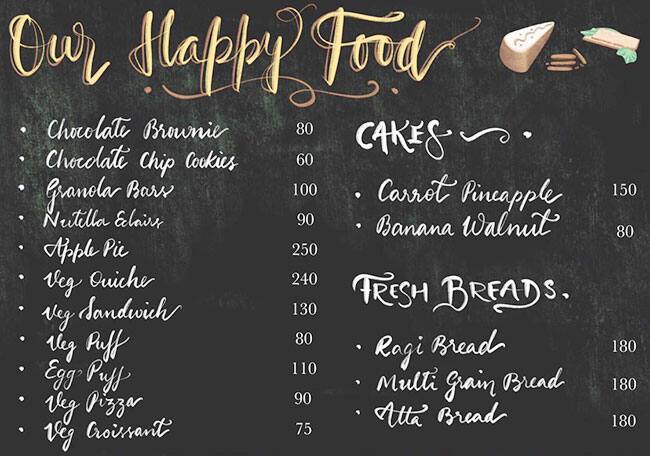 Our Happy Food
• Chocolate Brownie 80
• Chocolate Chip Cookies 60
• Granola Bars 100
• Nutella Eclairs 90
• Apple Pie 250
• Veg Quiche 240
• Veg Sandwich 130
• Veg Puff 80
• Egg Puff 110
• Veg Pizza 90
• Veg Croissant 75
CAKES
• Carrot Pineapple 150
• Banana Walnut 80
FRESH BREADS.
• Ragi Bread 180
• Multi Grain Bread 180
• Atta Bread 180